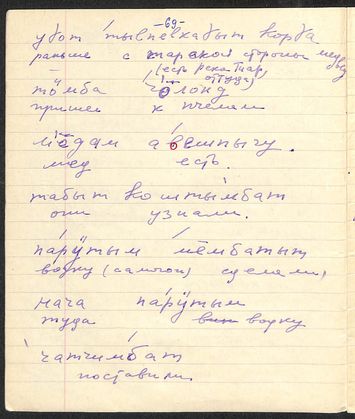 -69-
убот тывпевкадыт корба
раньше с тарской стороны медведь
(есть река Тар, оттуда)
тӧмба чӧлонд
пришел к пчелам
мӧдам авешпычу.
мед есть.
табыт коштымбат
они узнали.
парӱтым мембатыт
водку (самогон) сделали,
нача парӱтым
туда водку
чатчимбат
поставили.